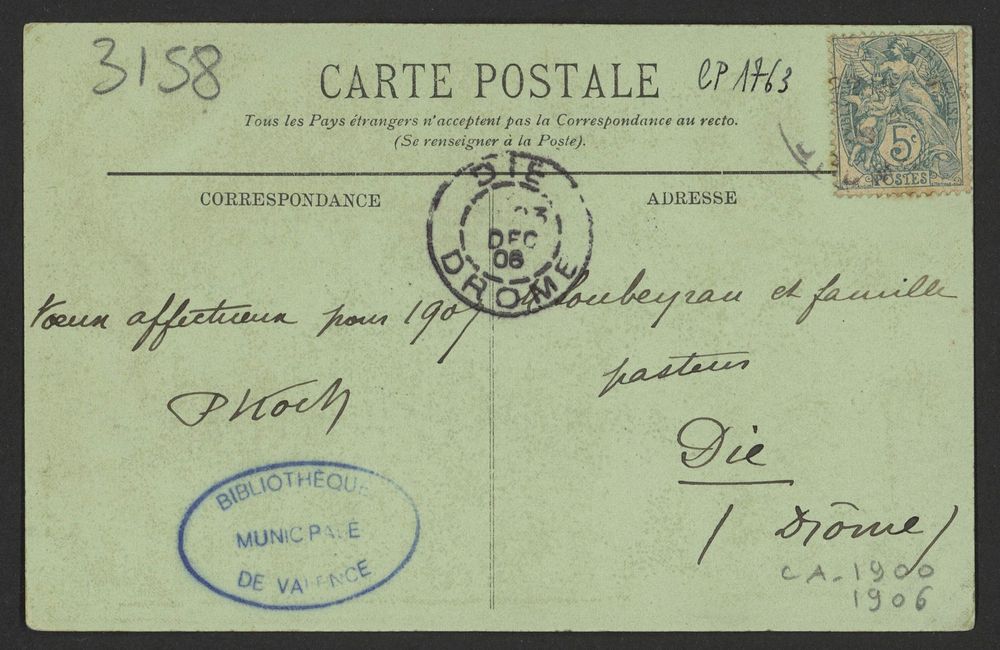 3158
CARTE POSTALE
CP 1763
Tous les Pays étrangers n'acceptent pas la Correspondance au recto.
(Se renseigner à la Poste).
5c
POSTES
CORRESPONDANCE
ADRESSE
DIE
23
DEC
06
DROME
Vœux affectueux pour 1907
PKoch
Soubeyran et famille
pasteur
Die
(Drôme)
BIBLIOTHÈQUE
MUNICIPALE
DE VALENCE
CA-1900
1906